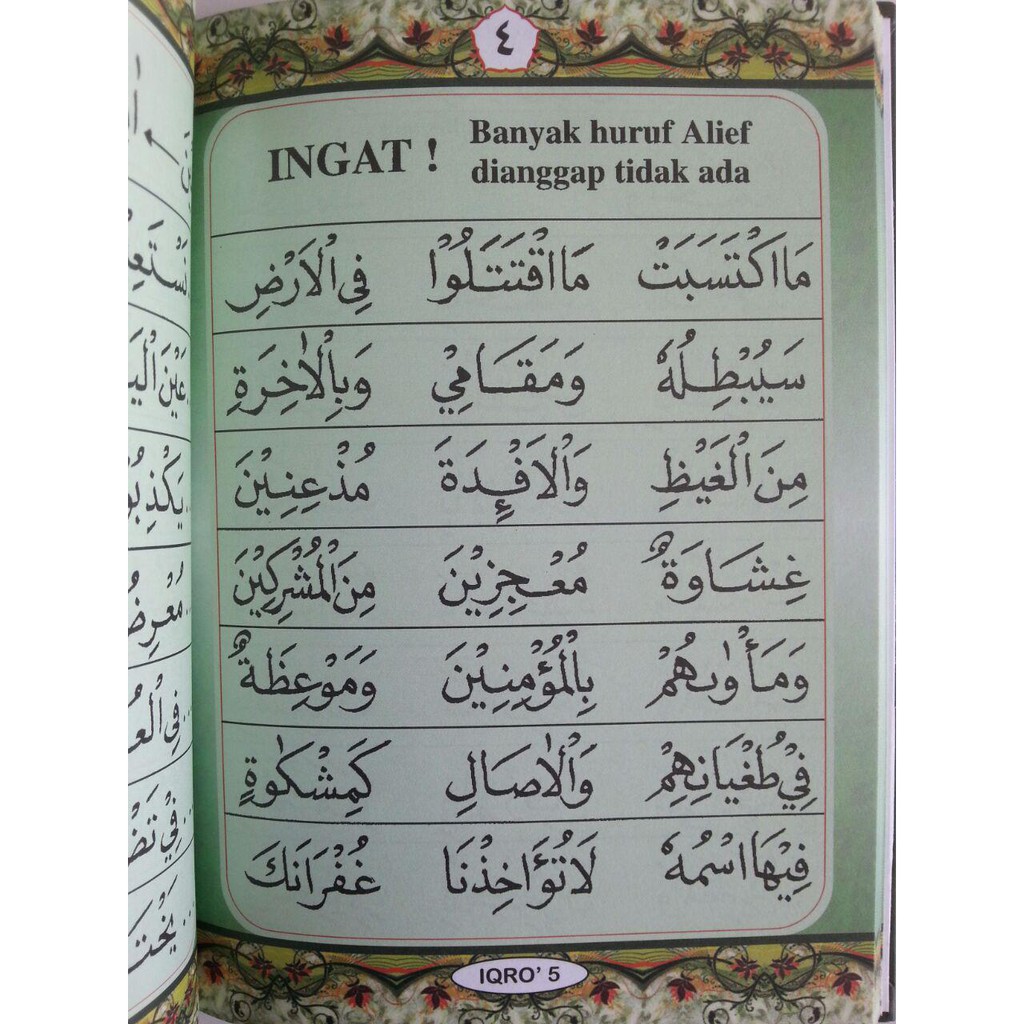 ٤
INGAT !
Banyak huruf Alief
dianggap tidak ada
مَا اكْتَسَبَتْ مَا اقْتَتَلُوْا فِى الْاَرْضِ
سَيُبْطِلُهٗ وَمَقَامِيْ وَبِالْاٰخِرَةِ
مِنَ الْغَيْظِ وَالْاَفْـِٕدَةَ مُذْعِنِيْنَ
غِشَاوَةٌ مُعْجِزِيْنَ مِنَ الْمُشْرِكِيْنَ
وَمَأْوٰىهُمْ بِالْمُؤْمِنِيْنَ وَمَوْعِظَةٌ
فِيْ طُغْيَانِهِمْ وَالْاٰصَالِ كَمِشْكَوٰةٍ
فِيْهَا اسْمُهٗ لَا تُؤَاخِذْنَا غُفْرَانَكَ
IQRO' 5